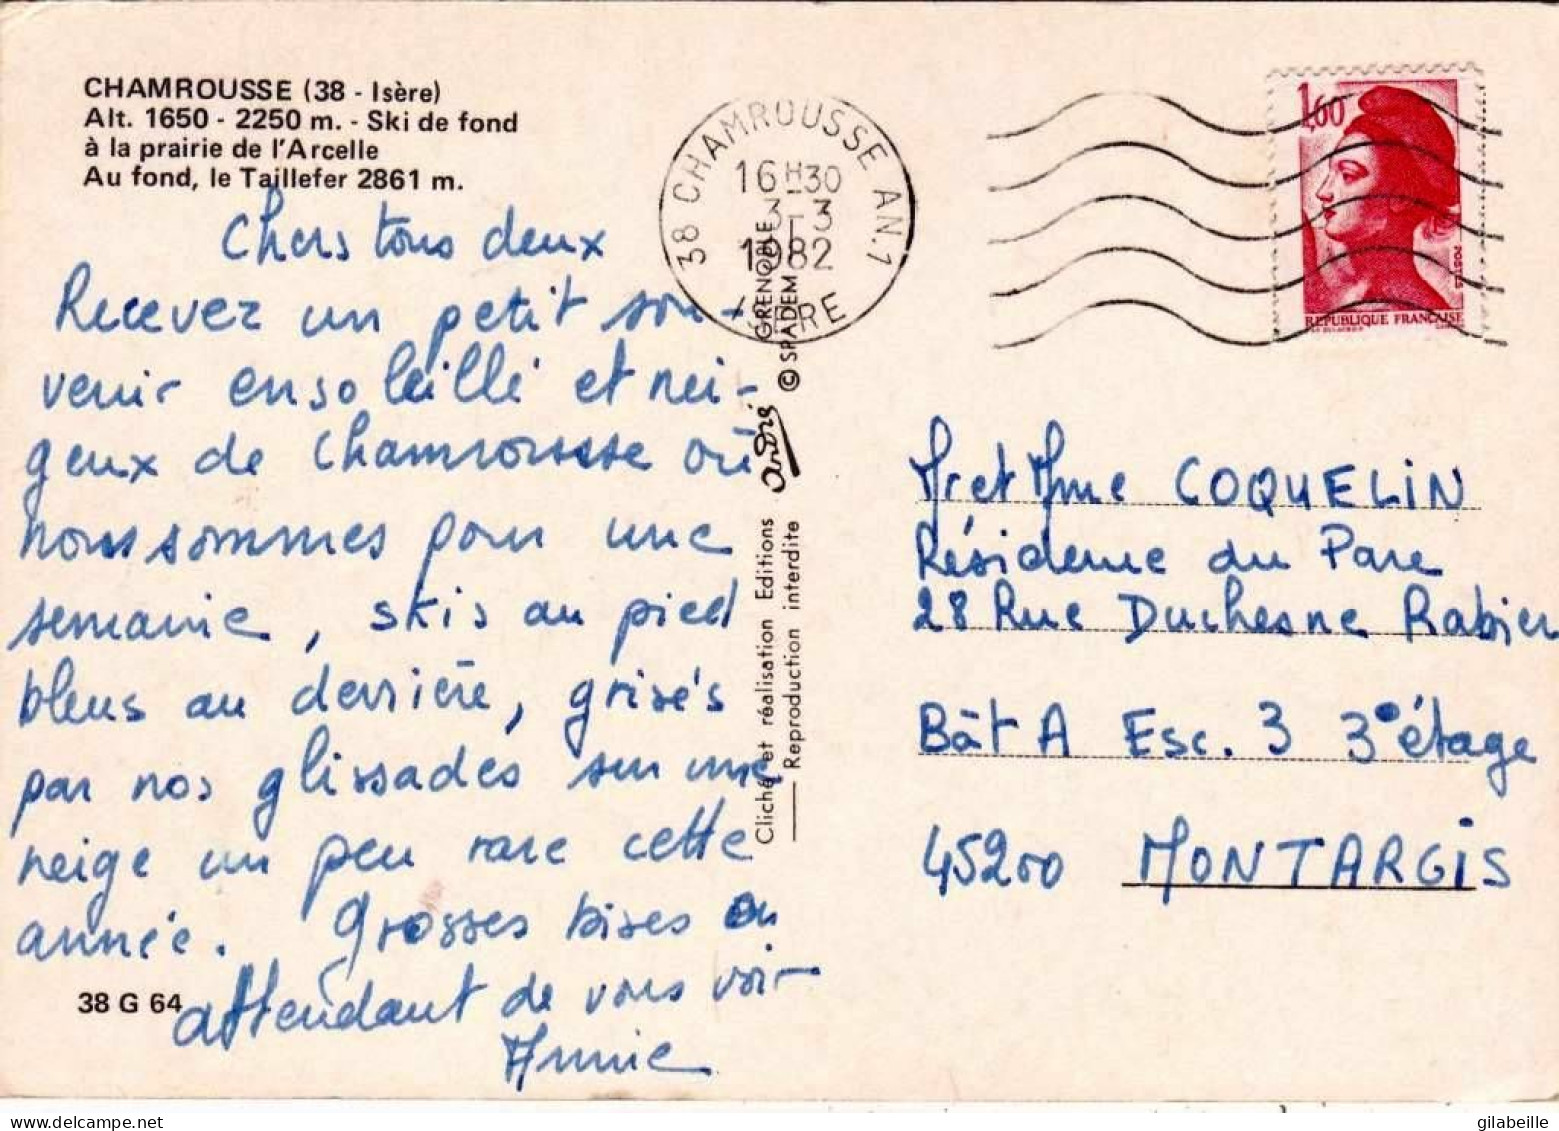 CHAMROUSSE (38 - Isère)
Alt. 1650 - 2250 m. - Ski de fond
à la prairie de l'Arcelle
Au fond, le Taillefer 2861 m.
Chers tous deux
Recevez un petit sou-
venir ensoleillé et nei-
geux de Chamrousse où
nous sommes pour une
semaine, skis au pied
bleus au derrière, grisés
par nos glissades sur une
neige un peu rare cette
année. Grosses bises en
attendant de vous voir
Annie
38 G 64
38 CHAMROUSSE AN.1
16H30
3-3
1982
ISERE
Cliché et réalisation Editions André GRENOBLE
Reproduction interdite © SPADEM
1,60
POSTES
REPUBLIQUE FRANÇAISE
Mr et Mme COQUELIN
Résidence du Parc
28 Rue Duchesne Rabier
Bât A Esc. 3 3° étage
45200 MONTARGIS
gilabeille